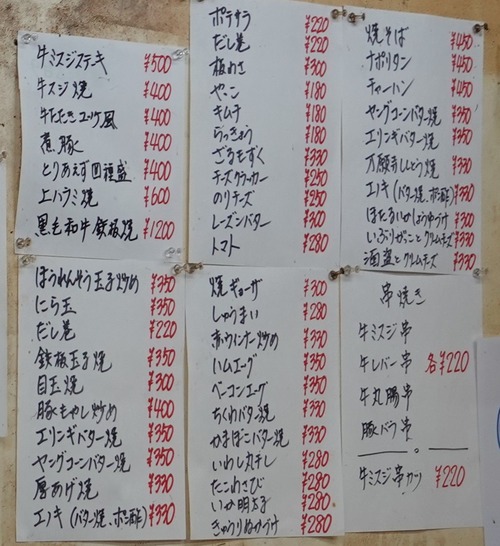 牛ミスジステーキ ¥500
牛スジ焼 ¥400
牛たたきユッケ風 ¥400
煮豚 ¥400
とりあえず四種盛 ¥400
上ハラミ焼 ¥600
黒毛和牛鉄板焼 ¥1200
ポテサラ ¥220
だし巻 ¥220
板わさ ¥300
やっこ ¥180
キムチ ¥180
らっきょう ¥180
ざるもずく ¥330
チーズクラッカー ¥250
のりチーズ ¥250
レーズンバター ¥300
トマト ¥280
焼そば ¥450
ナポリタン ¥450
チャーハン ¥450
ヤングコーンバター焼 ¥350
エリンギバター焼 ¥350
万願寺ししとう焼 ¥330
エノキ(バター焼、ポン酢) ¥330
ほたるいかしょうゆづけ ¥300
いぶりがっことクリームチーズ ¥330
酒盗とクリームチーズ ¥330
ほうれんそう玉子炒め ¥350
にら玉 ¥350
だし巻 ¥220
鉄板玉子焼 ¥350
目玉焼 ¥300
豚もやし炒め ¥400
エリンギバター焼 ¥350
ヤングコーンバター焼 ¥350
厚あげ焼 ¥330
エノキ(バター焼、ポン酢) ¥330
焼ギョーザ ¥300
しゅうまい ¥280
赤ウインナー炒め ¥330
ハムエーグ ¥350
ベーコンエーグ ¥350
ちくわバター焼 ¥330
かまぼこバター焼 ¥330
いわし丸干し ¥280
たこわさび ¥280
いか明太子 ¥280
きゅうりぬかづけ ¥280
串焼き
牛ミスジ串
牛レバー串 各¥220
牛丸腸串
豚バラ串
牛ミスジ串カツ ¥220